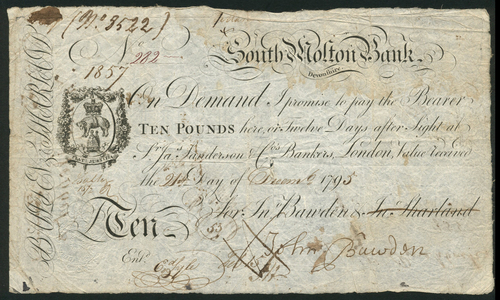 (No 3522)
No 282
1857
South Molton Bank
Devonshire
On Demand I promise to pay the Bearer
TEN POUNDS here, or Twelve Days after Sight at
Sr. Jas. Sanderson & Cos. Bankers, London, Value received
the Day of Decem 1795
For Jno. Bawden & Jno. Sharland
Ten
John Bawden
Entd.